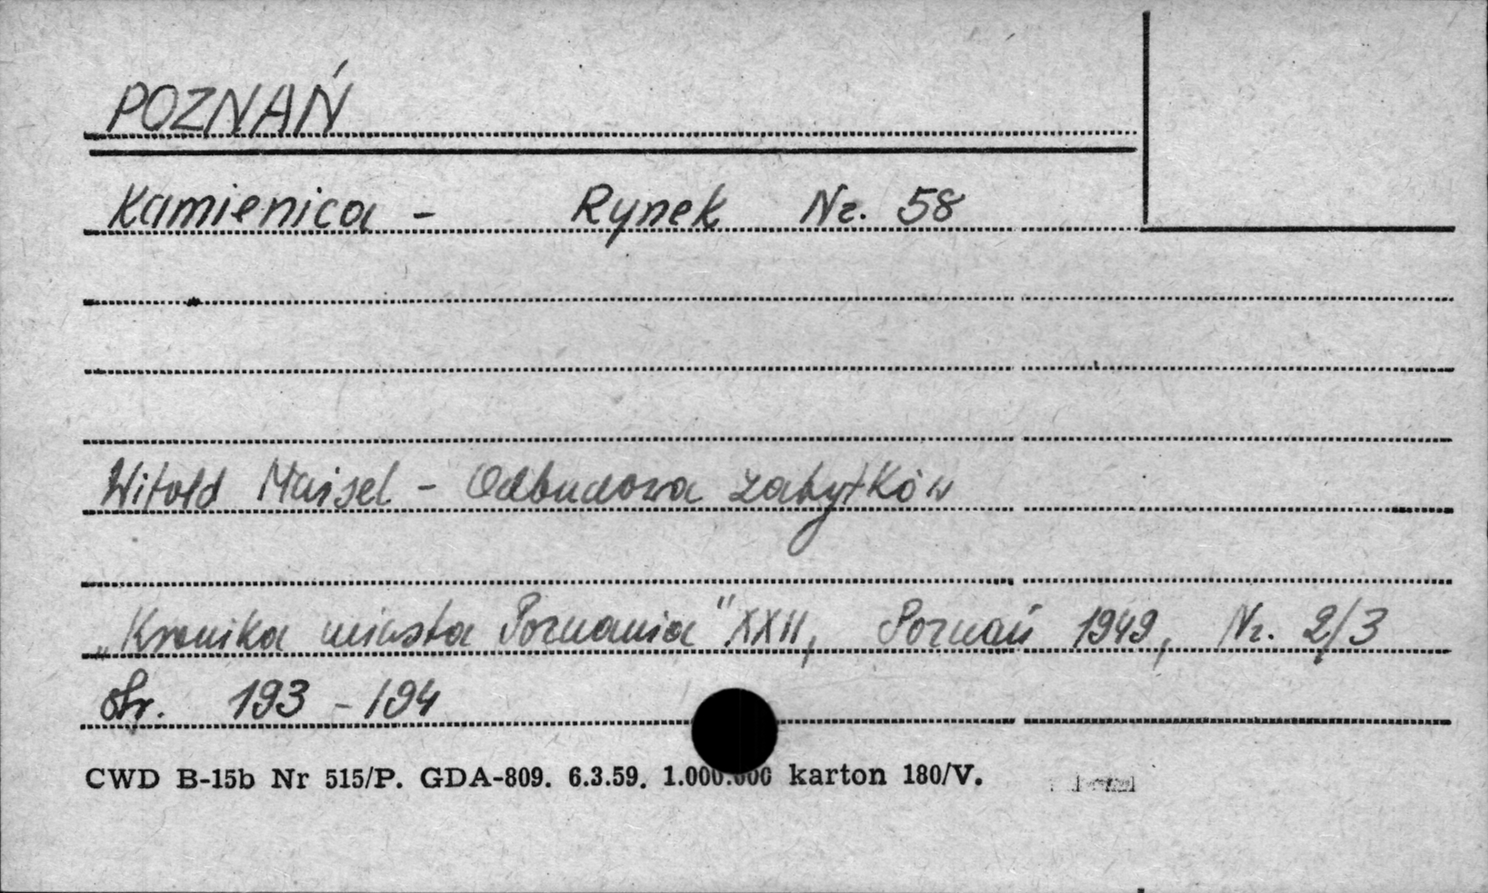 POZNAŃ
Kamienica - Rynek Nr. 58
Witold Maisel - Odbudowa zabytków
„Kronika miasta Poznania" XXII, Poznań 1949, Nr. 2/3
str. 193 - 194
CWD B-15b Nr 515/P. GDA-809. 6.3.59. 1.000.000 karton 180/V.